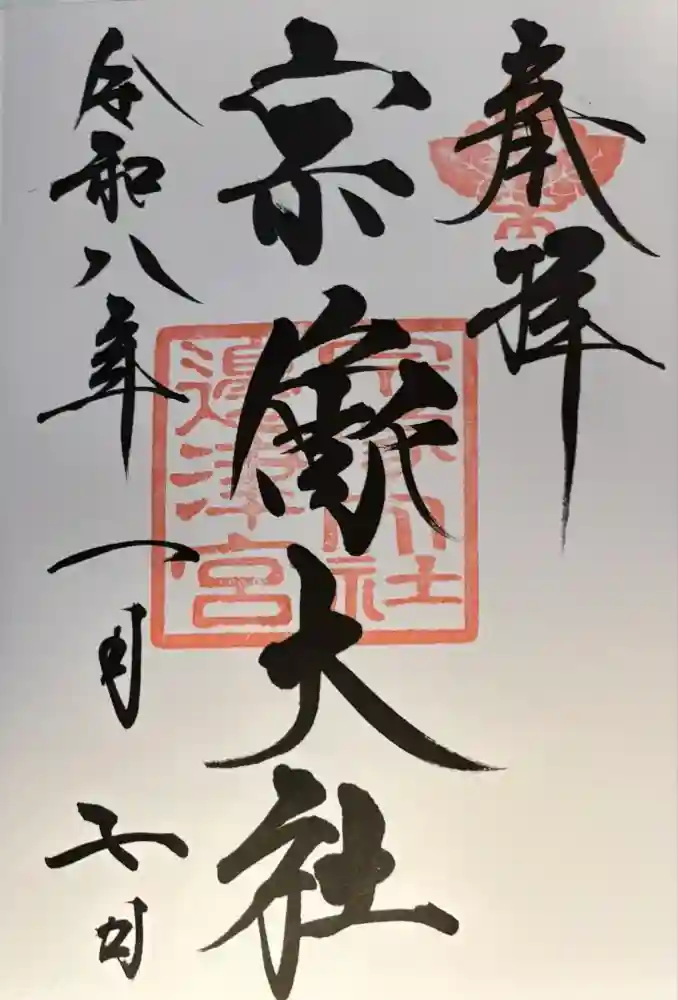 奉拝
宗像大社
令和八年一月 日
宗像神社
邊津宮